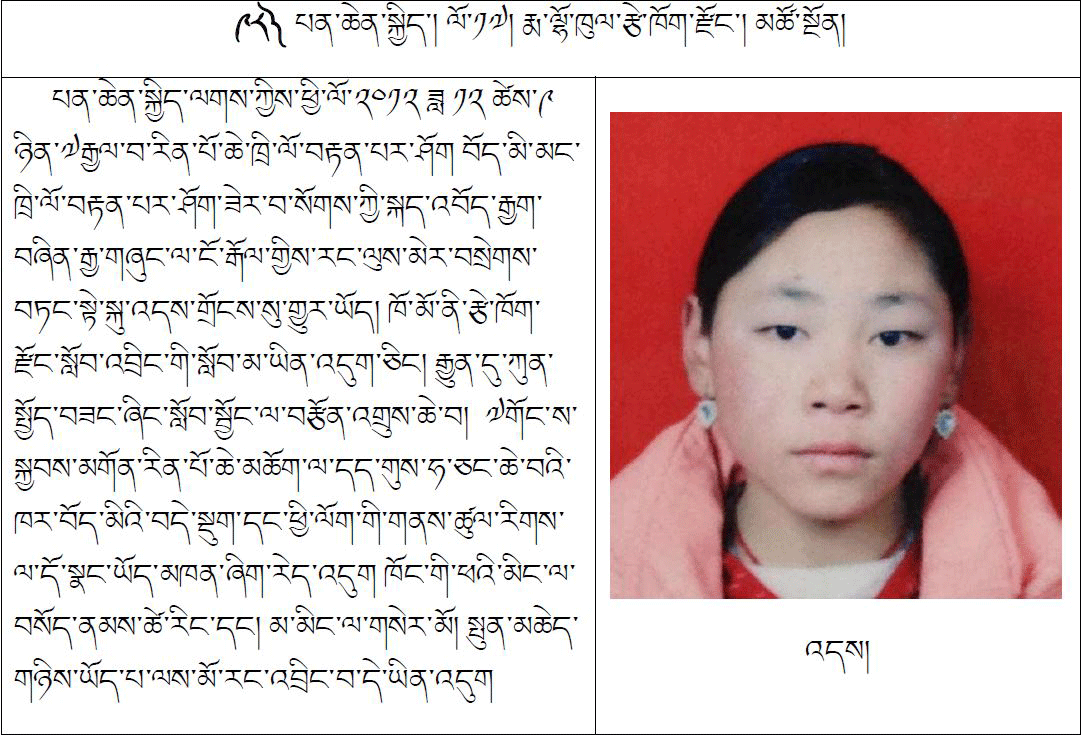 ༩༤༽ པན་ཆེན་སྐྱིད། ལོ་༡༧། རྨ་ལྷོ་ཁུལ་རྩེ་ཁོག་རྫོང་། མཚོ་སྔོན།
པན་ཆེན་སྐྱིད་ལགས་ཀྱིས་ཕྱི་ལོ་༢༠༡༢ ཟླ ༡༢ ཚེས་༩
ཉིན་༧རྒྱལ་བ་རིན་པོ་ཆེ་ཁྲི་ལོ་བརྟན་པར་ཤོག བོད་མི་མང་
ཁྲི་ལོ་བརྟན་པར་ཤོག་ཟེར་བ་སོགས་ཀྱི་སྐད་འབོད་རྒྱག་
བཞིན་རྒྱ་གཞུང་ལ་ངོ་རྒོལ་གྱིས་རང་ལུས་མེར་བསྲེགས་
བཏང་སྟེ་སྐུ་འདས་གྲོངས་སུ་གྱུར་ཡོད། ཁོ་མོ་ནི་རྩེ་ཁོག་
རྫོང་སློབ་འབྲིང་གི་སློབ་མ་ཡིན་འདུག་ཅིང། རྒྱུན་དུ་ཀུན་
སྤྱོད་བཟང་ཞིང་སློབ་སྦྱོང་ལ་བརྩོན་འགྲུས་ཆེ་བ། ༧གོང་ས་
སྐྱབས་མགོན་རིན་པོ་ཆེ་མཆོག་ལ་དད་གུས་ཧ་ཅང་ཆེ་བའི་
ཁར་བོད་མིའི་བདེ་སྡུག་དང་ཕྱི་ལོག་གི་གནས་ཚུལ་རིགས་
ལ་དོ་སྣང་ཡོད་མཁན་ཞིག་རེད་འདུག ཁོང་གི་ཕའི་མིང་ལ་
བསོད་ནམས་ཚེ་རིང་དང། མ་མིང་ལ་གསེར་མོ། སྤུན་མཆེད་
གཉིས་ཡོད་པ་ལས་མོ་རང་འབྲིང་བ་དེ་ཡིན་འདུག
འདས།